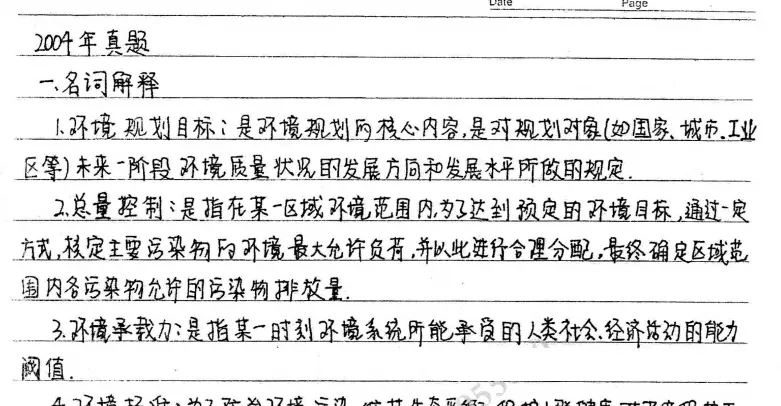 Date Page
2004年真题
一、名词解释
1.环境规划目标:是环境规划的核心内容,是对规划对象(如国家、城市、工业
区等)未来一阶段环境质量状况的发展方向和发展水平所做的规定.
2.总量控制:是指在某一区域环境范围内,为了达到预定的环境目标,通过一定
方式,核定主要污染物的环境最大允许负荷,并以此进行合理分配,最终确定区域范
围内各污染物允许的污染物排放量.
3.环境承载力:是指某一时刻环境系统所能承受的人类社会、经济活动的能力
阈值.
4.环境标准:为了防治环境污染,维护生态平衡,保护人群健康,